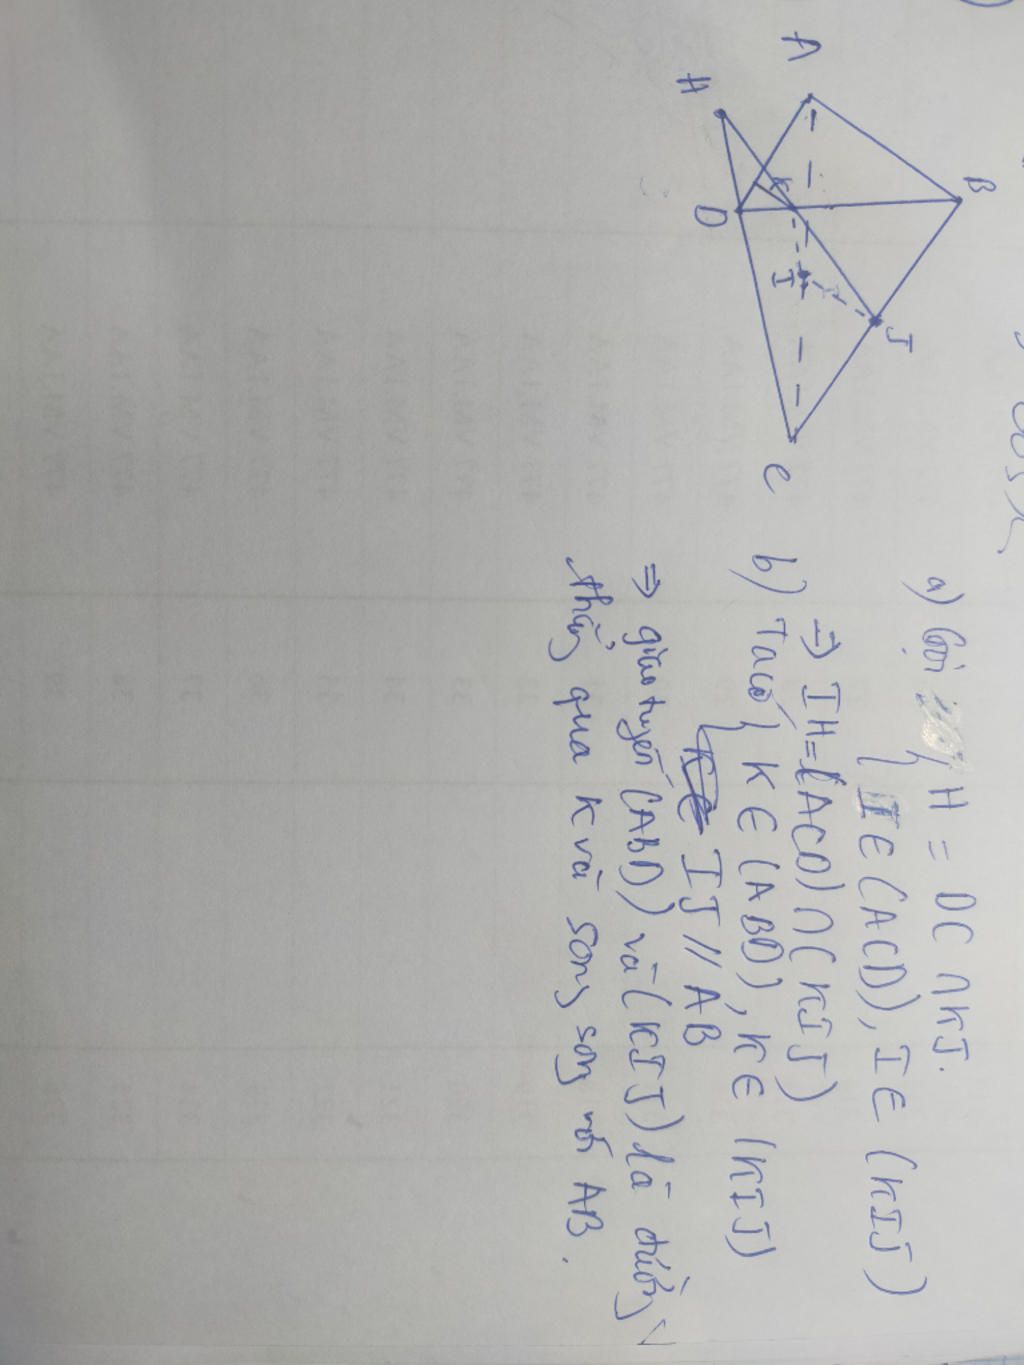 A
B
H
K
D
I
J
C
a) Gọi H = DC ∩ KJ.
I ∈ (ACD), I ∈ (KIJ)
⇒ IH = (ACD) ∩ (KIJ)
b) Ta có K ∈ (ABD), K ∈ (KIJ)
IJ // AB
⇒ giao tuyến (ABD) và (KIJ) là đường
thẳng qua K và song song với AB.